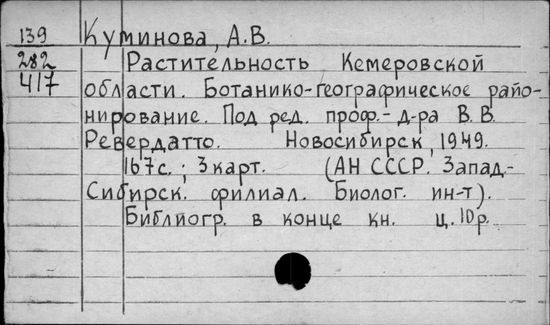 139 Куминова, А.В.
282 Растительность Кемеровской
417 области. Ботанико-географическое райо-
нирование. Под ред. проф.- д-ра В.В.
Ревердатто. Новосибирск, 1949.
167с.; 3 карт. (АН СССР. Запад.-
Сибирск. филиал. Биолог. ин-т).
Библиогр. в конце кн. ц. 10р.